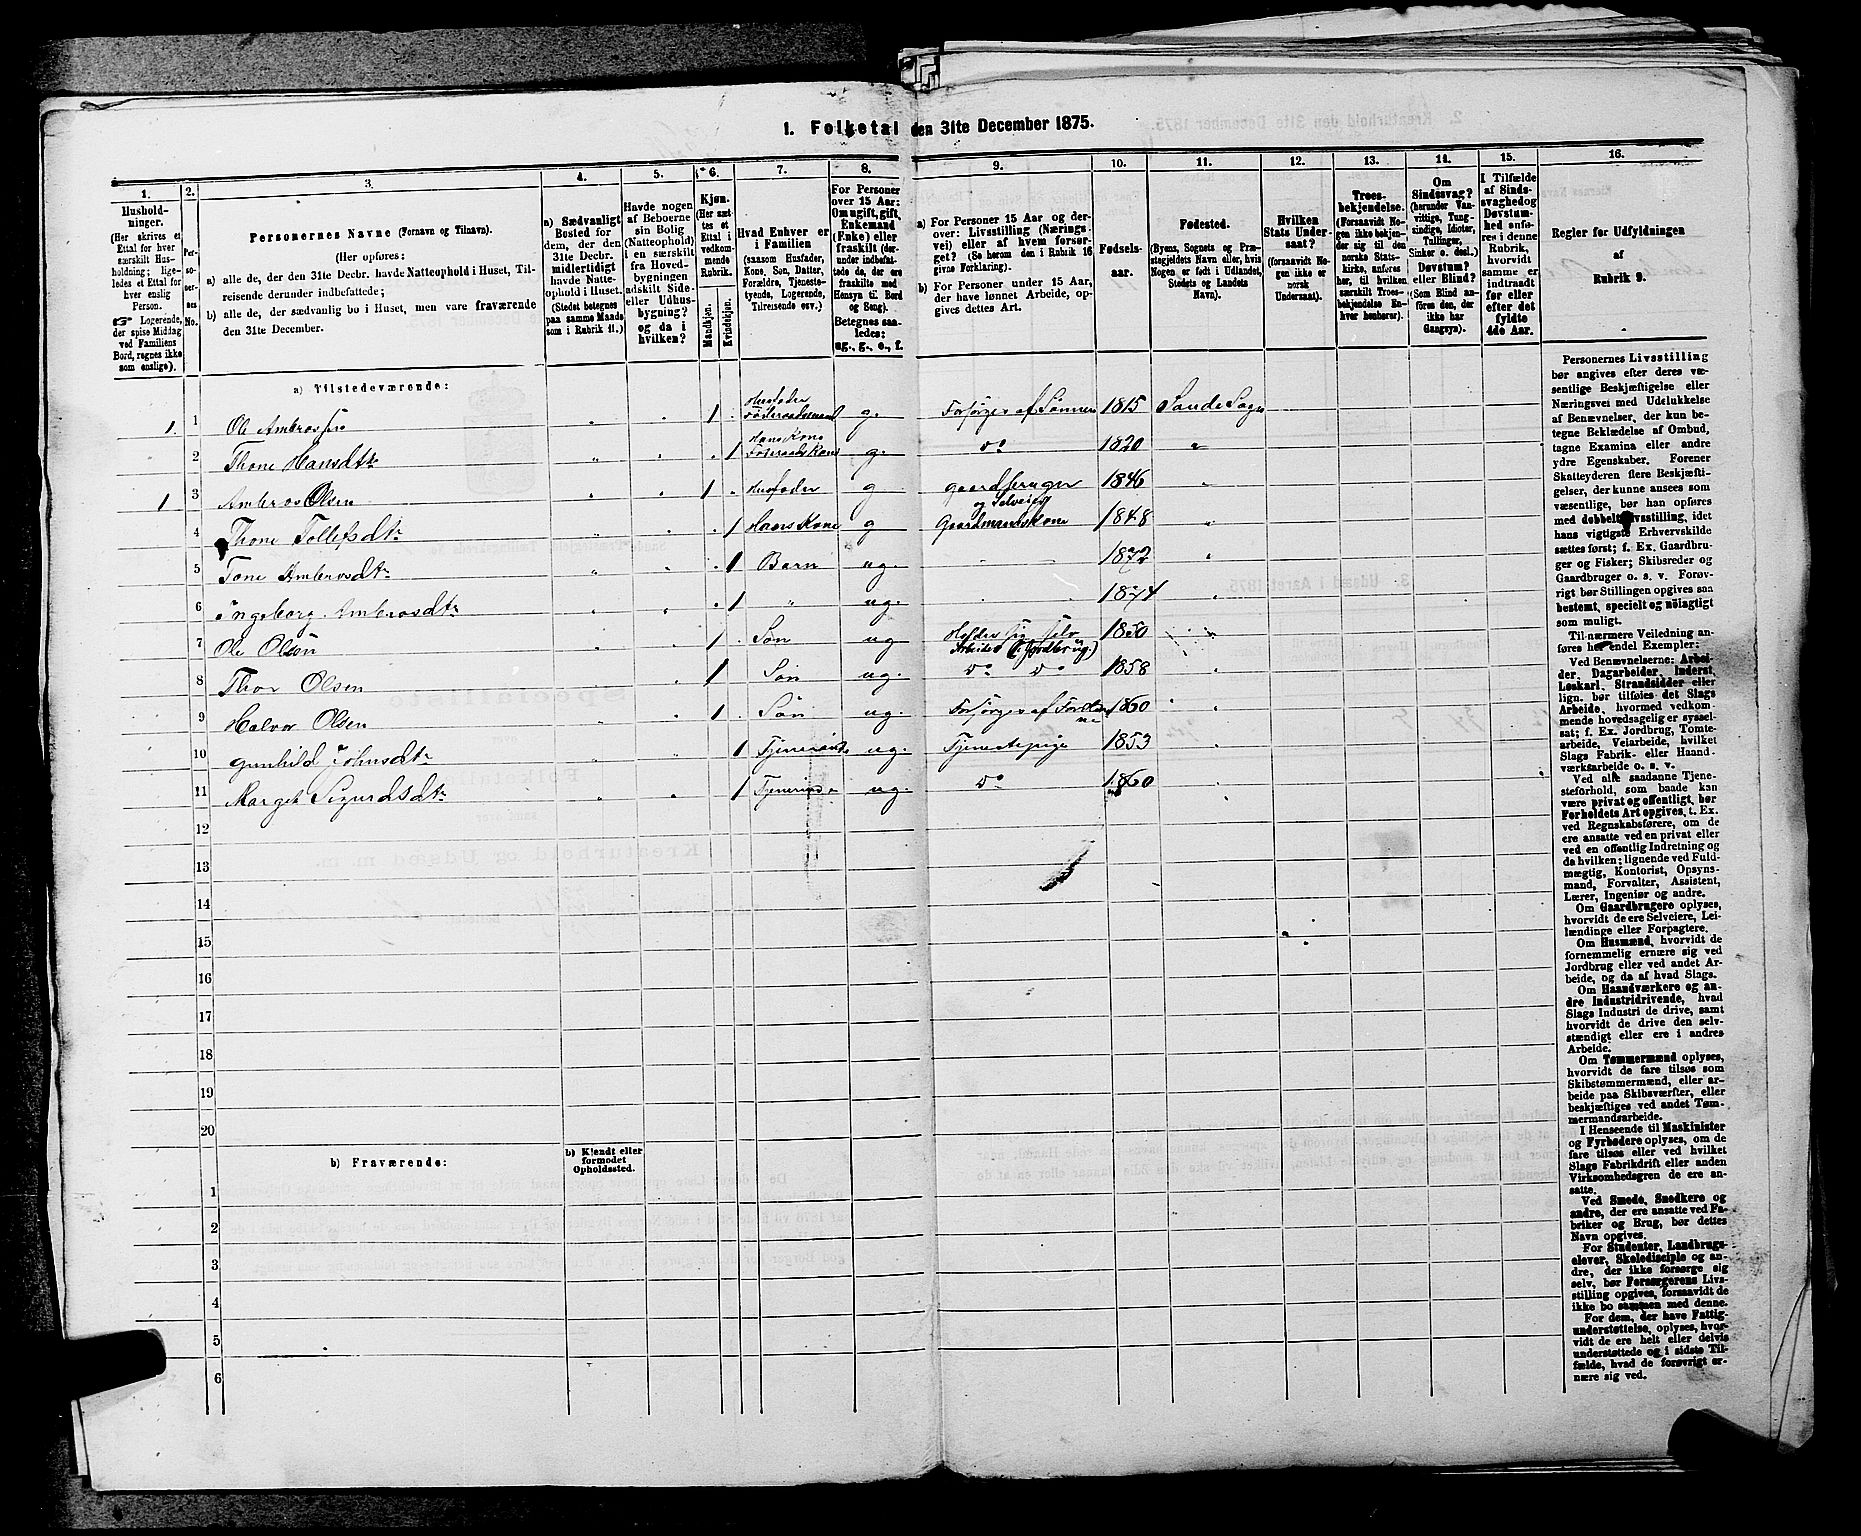 1. Folketal den 31te December 1875.
1.
Hushold-
ninger.
(Her skrives et
Ettal for hver
særskilt Hus-
holdning; lige-
ledes et Ettal for
hver enslig
Person.
Logerende,
der spise Middag
ved Familiens
Bord, regnes ikke
som enslige).
2.
Per-
so-
ner-
nes
No.
3.
Personernes Navne (Fornavn og Tilnavn).
(Her opføres:
a) alle de, der den 31te Decbr. havde Natteophold i Huset, Til-
reisende derunder indbefattede;
b) alle de, der sædvanlig bo i Huset, men vare fraværende
den 31te December.
4.
a) Sædvanligt
Bosted for
dem, der den
31te Decbr.
midlertidigt
havde Natte-
ophold i Huset.
(Stedet betegnes
paa samme Maade
som i Rubrik 11.)
5.
Havde nogen
af Beboerne
sin Bolig
(Natteophold)
i en særskilt
fra Hoved-
bygningen
adskilt Side-
eller Udhus-
bygning?
og da i
hvilken?
6.
Kjøn.
(Her sæt-
tes et
Ettal i
vedkom-
mende
Rubrik.
Mandkjøn.
Kvindekjøn.
7.
Hvad Enhver er
i Familien
(saasom Husfader,
Kone, Søn, Datter,
Forældre, Tjeneste-
tyende, Logerende,
Tilreisende osv.)
8.
For Personer
over 15 Aar:
Om ugift, gift,
Enkemand
(Enke) eller
fraskilt (der-
under indbefat-
tede de, der ere
fraskilte med
Hensyn til Bord
og Seng).
Betegnes saa-
ledes:
ug., g., e., f.
9.
a) For Personer 15 Aar og der-
over: Livsstilling (Nærings-
vei) eller af hvem forsør-
get? (Se herom den i Rubrik 16
givne Forklaring).
b) For Personer under 15 Aar,
der have lønnet Arbeide, op-
gives dettes Art.
10.
Fødsels-
aar.
11.
Fødested.
(Byens, Sognets og Præ-
stegjeldets Navn eller, hvis
Nogen er født i Udlandet,
Stedets og Landets
Navn).
12.
Hvilken
Stats Under-
saat?
(forsaavidt No-
gen ikke er
norsk
Undersaat).
13.
Troes-
bekjendelse.
(Forsaavidt No-
gen ikke bekjen-
der sig til den
norske Stats-
kirke, anføres
her, til hvilken
særskilt Troes-
bekjendelse En-
hver henhører).
14.
Om
Sindssvag?
(herunder Van-
vittige, Tung-
sindige, Idioter,
Tullinger,
Sinker o. desl.)
Døvstum?
eller Blind?
(Som Blind an-
føres den, der
ikke har
Gangsyn).
15.
I Tilfælde
af Sinds-
svaghed og
Døvstum-
hed anfø-
res i denne
Rubrik,
hvorvidt
samme er
indtraadt
før eller
efter det
fyldte
4de Aar.
16.
Regler for Udfyldningen
af
Rubrik 9.
a) Tilstedeværende:
1. 1 Ole Ambrossen 1 Husfader Føderaadsmand g. Forsørges af Sønnen 1815 Sande Sogn
2 Thone Hansdtr 1 Hans Kone Føderaadskone g. do 1820 "
1 3 Ambros Olsen 1 Husfader g gaardbruger og Selveier 1846 "
4 Thone Tollefsdtr 1 Hans Kone g Gaardmandskone 1848 "
5 Tone Ambrosdtr 1 Barn ug. 1872 "
6 Ingeborg Ambrosdtr 1 " ug. 1874 "
7 Ole Olsen 1 Søn ug Holder sig selv Arbeider (i Jordbrug.) 1850 "
8 Thor Olsen 1 Søn ug. do do 1858 "
9 Halvor Olsen 1 Søn ug. Forsørges af Forældrene 1860 "
10 Gunhild Johnsdtr 1 ug. Tjenestepige 1853 "
11 Marget Sigurdsdtr 1 ug. do 1860
12
13
14
15
16
17
18
19
20
b) Fraværende:
b) Kjendt eller
formodet
Opholdssted.
1
2
3
4
5
6
Personernes Livsstilling
bør angives efter deres væ-
sentlige Beskjæftigelse eller
Næringsvei med Udelukkelse
af Benævnelser, der kun be-
tegne Beklædelse af Ombud,
tagne Examina eller andre
ydre Egenskaber. Forener
Skatteyderen flere Beskjæfti-
gelser, der kunne ansees som
væsentlige, bør han opføres
med dobbelt Livsstilling, idet
hans vigtigste Erhvervskilde
sættes først; f. Ex. Gaardbru-
ger og Fisker; Skibsreder og
Gaardbruger o. s. v. Forøv-
rigt bør Stillingen opgives saa
bestemt, specielt og nøiagtigt
som muligt.
Til nærmere Veiledning an-
føres her endel Exempler:
Ved Benævnelserne: Arbei-
der, Dagarbeider, Inderst,
Løskarl, Strandsidder eller
lign. bør tilføies det Slags
Arbeide, hvormed vedkom-
mende hovedsagelig er syssel-
sat; f. Ex. Jordbrug, Tomte-
arbeide, Veiarbeide, hvilket
Slags Fabrik- eller Haand-
værksarbeide o. s. v.
Ved alle saadanne Tjene-
steforhold, som baade kan
være privat og offentligt, bør
Forholdets Art opgives, t. Ex.
ved Regnskabsførere, om de
ere ansatte ved en privat eller
ved en offentlig Indretning og
da hvilken; lignende ved Fuld-
mægtig, Kontorist, Opsyns-
mand, Forvalter, Assistent,
Lærer, Ingeniør og andre.
Om Gaardbrugere oplyses,
hvorvidt de ere Selveiere, Lei-
lændinge eller Forpagtere.
Om Husmænd, hvorvidt de
fornemmelig ernære sig ved
Jordbrug eller ved andet Ar-
beide, og da af hvad Slags.
Om Haandværkere og an-
dre Industridrivende, hvad
Slags Industri de drive, samt
hvorvidt de drive den selv-
stændigt eller ere i andres
Arbeide.
Om Tømmermænd oplyses,
hvorvidt de fare tilsøs som
Skibstømmermænd, eller ar-
beide paa Skibsværfter, eller
beskjæftiges ved andet Tøm-
mermandsarbeide.
I Henseende til Maskinister
og Fyrbødere oplyses, om de
fare tilsøs eller ved hvilket
Slags Fabrikdrift eller anden
Virksomhedsgren de ere an-
satte.
Ved Smede, Snedkere og
andre, der ere ansatte ved Fa-
briker og Brug, bør dettes
Navn opgives.
For Studenter, Landbrugs-
elever, Skoledisciple og an-
dre, der ikke forsørge sig
selv, bør Forsørgerens Livs-
stilling opgives, forsaavidt de
ikke bo sammen med denne.
For dem, der have Fattig-
understøttelse, oplyses, hvor-
vidt de ere helt eller delvis
understøttede og i sidste Til-
fælde, hvad de forøvrigt er-
nære sig ved.